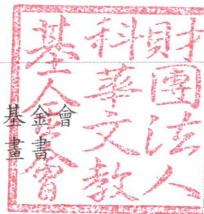 財團法人
科華文教
基金會
基金會
畫書